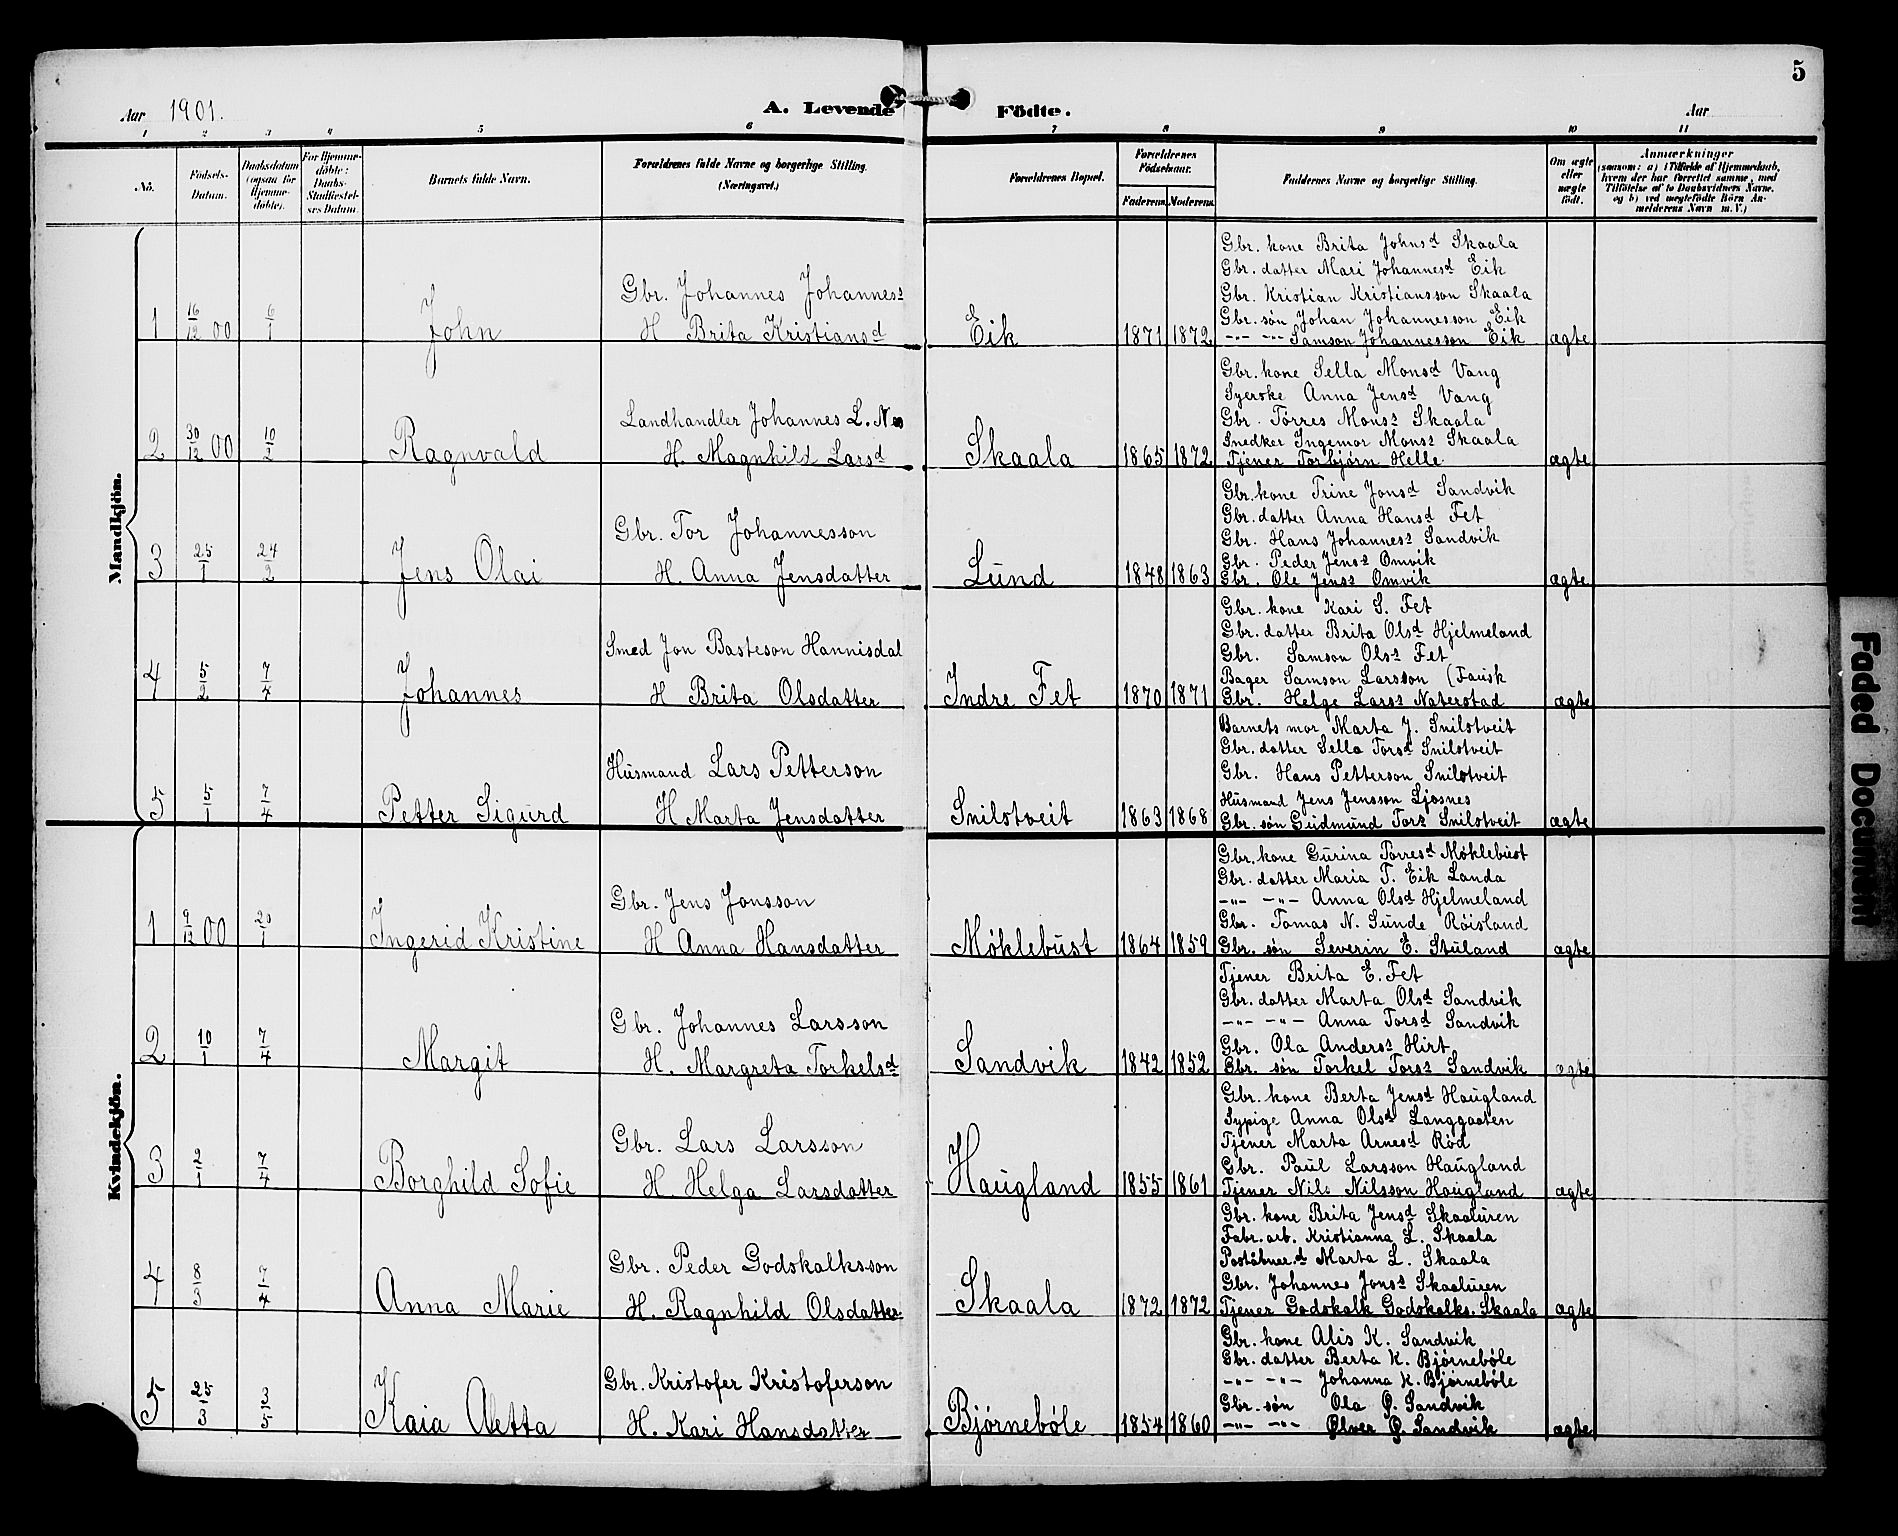 5
Aar 1901.
A. Levende Födte.
Aar
1 2 3 4 5 6 7 8 9 10 11
No.
Födsels-Datum.
Daabsdatum (ogsaa for Hjemme-döbte).
For Hjemme-döbte: Daabs-Stadfæstel-ses Datum.
Barnets fulde Navn.
Forældrenes fulde Navne og borgerlige Stilling. (Næringsvei.)
Forældrenes Bopæl.
Forældrenes Födselsaar.
Faderens. Moderens.
Faddernes Navne og borgerlige Stilling.
Om ægte eller uægte födt.
Anmærkninger
(saasom: a) i Tilfælde af Hjemmedaab, hvem der har forrettet samme, med Tilföielse af to Daabsvidners Navne, og b) ved uægtefödte Börn An-melderens Navn m. V.)
Mandkjön.
1 16/12 00 6/1 John
Gbr. Johannes Johanness
H Brita Kristiansd
Eik 1871 1872
Gbr. kone Brita Johnsd Skaala
Gbr. datter Mari Johannesd Eik
Gbr. Kristian Kristiansson Skaala
Gbr. søn Johan Johannesson Eik
-"- -"- Samson Johannesson Eik
ægte
2 30/12 00 10/2 Ragnvald
Landhandler Johannes L. Nes
H. Magnhild Larsd
Skaala 1865 1872
Gbr. kone Sella Monsd Vang
Syerske Anna Jensd Vang
Gbr. Tørres Monss Skaala
Snedker Ingemar Monss Skaala
Tjener Torbjørn Helle
ægte
3 25/1 24/2 Jens Olai
Gbr. Tor Johannesson
H. Anna Jensdatter
Lund 1848 1863
Gbr. kone Trine Jonsd Sandvik
Gbr. datter Anna Hansd Fet
Gbr. Hans Johanness Sandvik
Gbr. Peder Jenss Omvik
Gbr. Ole Jenss Omvik
ægte
4 5/2 7/4 Johannes
Smed Jon Basteson Hannisdal
H Brita Olsdatter
Indre Fet 1870 1871
Gbr. kone Kari S. Fet
Gbr. datter Brita Olsd Hjelmeland
Gbr. Samson Olss Fet
Bager Samson Larsson (Fausk
Gbr. Helge Larss Naterstad
ægte
5 5/1 7/4 Petter Sigurd
Husmand Lars Petterson
H Marta Jensdatter
Snilstveit 1863 1868
Barnets mor Marta J. Snilstveit
Gbr. datter Sella Torsd Snilstveit
Gbr. Hans Petterson Snilstveit
Husmand Jens Jensson Ljosnes
Gbr. søn Gudmund Torss Snilstveit
ægte
Kvindekjön.
1 9/12 00 20/1 Ingerid Kristine
Gbr. Jens Jonsson
H Anna Hansdatter
Møklebust 1864 1859
Gbr. kone Gurina Torresd Møklebust
Gbr. datter Maria T. Eik Landa
-"- -"- Anna Olsd Hjelmeland
Gbr. Tomas N. Sunde Røisland
Gbr. søn Severin E. Stuland
ægte
2 10/1 7/4 Margit
Gbr. Johannes Larsson
H. Margreta Torkelsd
Sandvik 1842 1852
Tjener Brita E. Fet
Gbr. datter Marta Olsd Sandvik
-"- -"- Anna Torsd Sandvik
Gbr. Ola Anderss Hirt
Gbr. søn Torkel Torss Sandvik
ægte
3 2/1 7/4 Borghild Sofie
Gbr. Lars Larsson
H. Helga Larsdatter
Haugland 1855 1861
Gbr. kone Berta Jensd Haugland
Sypige Anna Olsd Langgaaten
Tjener Marta Arnesd Rød
Gbr. Paul Larsson Haugland
Tjener Nils Nilsson Haugland
ægte
4 8/3 7/4 Anna Marie
Gbr. Peder Godskalksson
H. Ragnhild Olsdatter
Skaala 1872 1872
Gbr. kone Brita Jensd Skaaluren
Fabr. arb. Kristianna L. Skaala
Poståbner.d Marta L. Skaala
Gbr. Johannes Jonss Skaaluren
Tjener Godskalk Godskalks. Skaala
ægte
5 25/3 3/5 Kaia Aletta
Gbr. Kristofer Kristoferson
H. Kari Hansdatter
Bjørnebôle 1854 1860
Gbr. kone Alis K. Sandvik
Gbr. datter Berta K. Bjørnebôle
-"- -"- Johanna K. Bjørnebôle
Gbr. søn Ola Ø. Sandvik
-"- -"- Ølver Ø. Sandvik
ægte
Faded Document